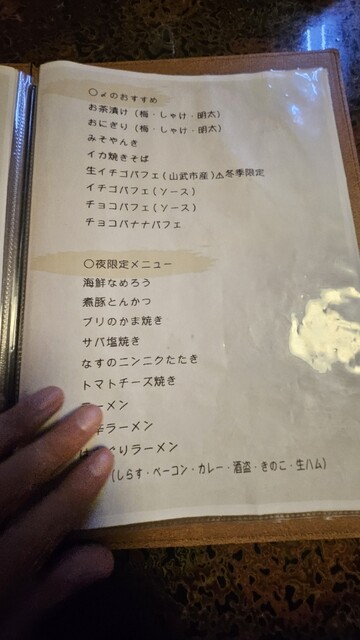 〇〆のおすすめ
お茶漬け(梅・しゃけ・明太)
おにぎり(梅・しゃけ・明太)
みそやんき
イカ焼きそば
生イチゴパフェ(山武市産)⚠冬季限定
イチゴパフェ(ソース)
チョコパフェ(ソース)
チョコバナナパフェ
〇夜限定メニュー
海鮮なめろう
煮豚とんかつ
ブリのかま焼き
サバ塩焼き
なすのニンニクたたき
トマトチーズ焼き
ラーメン
辛ラーメン
ぐりラーメン
(しらす・ベーコン・カレー・酒盗・きのこ・生ハム)